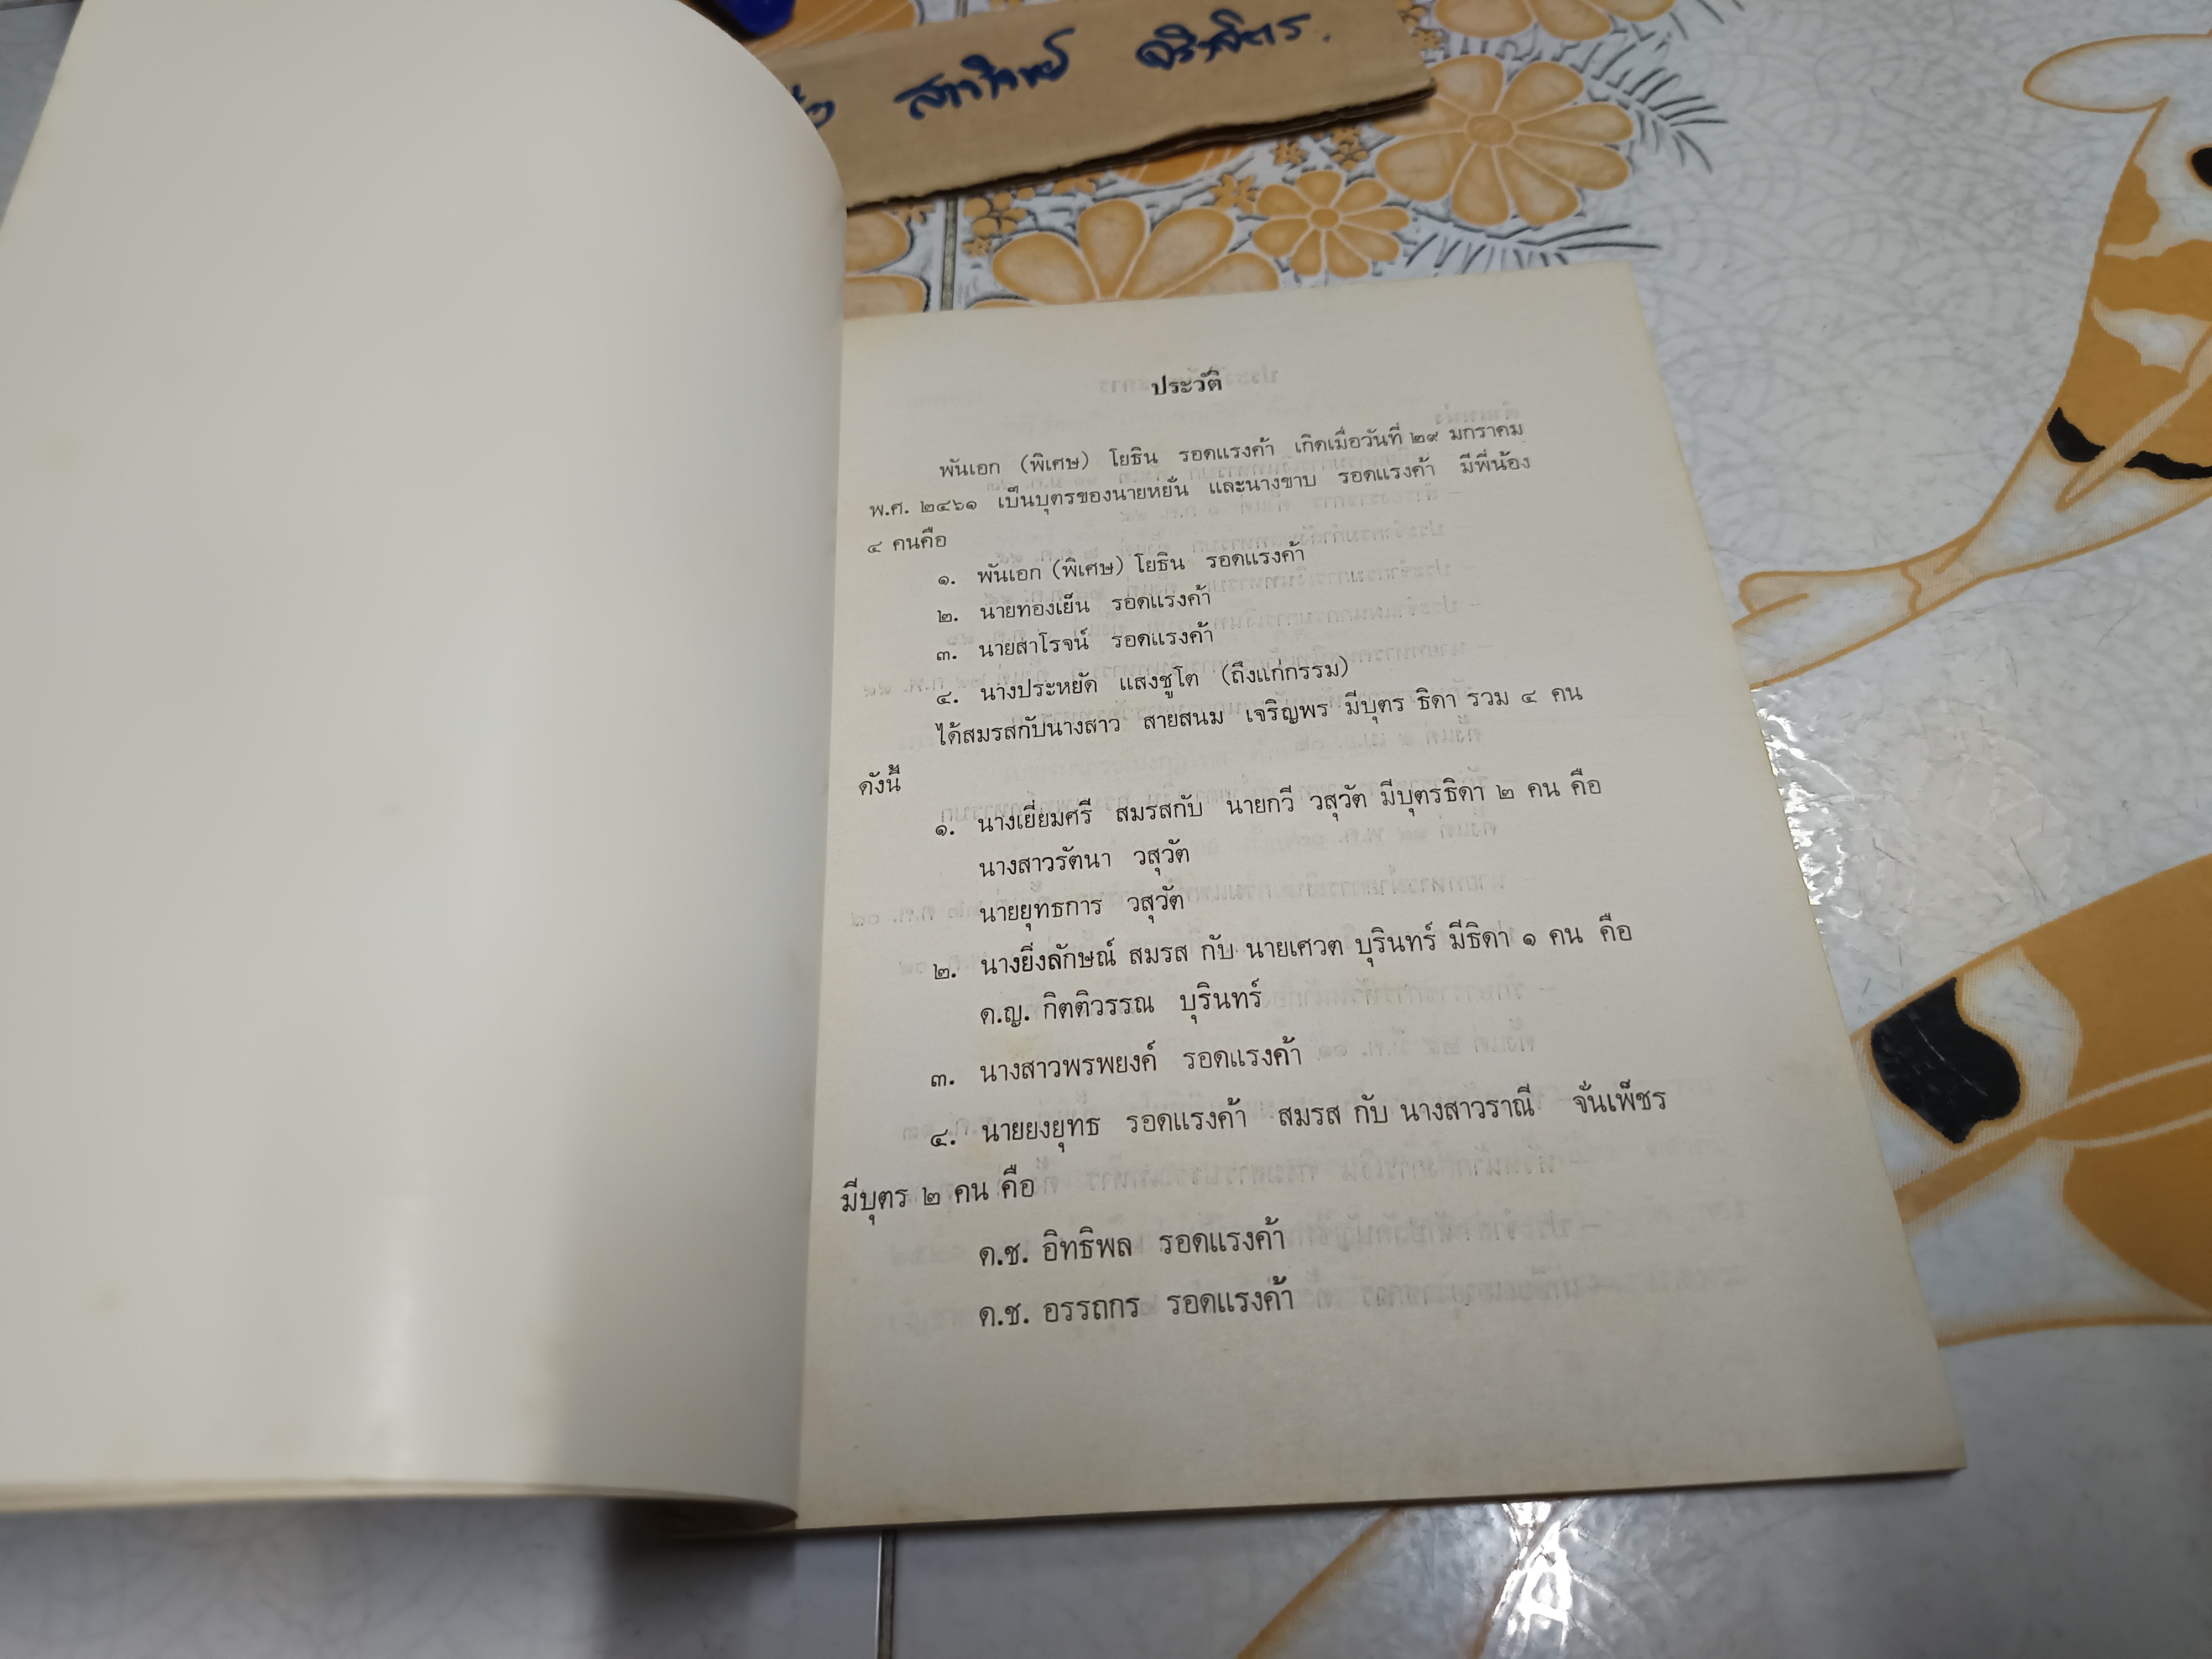 ประวัติ
พันเอก (พิเศษ) โยธิน รอดแรงค้า เกิดเมื่อวันที่ ๒๙ มกราคม
พ.ศ. ๒๔๖๑ เป็นบุตรของนายหยั่น และนางขาบ รอดแรงค้า มีพี่น้อง
๔ คนคือ
๑. พันเอก (พิเศษ) โยธิน รอดแรงค้า
๒. นายทองเย็น รอดแรงค้า
๓. นายสาโรจน์ รอดแรงค้า
๔. นางประหยัด แสงชูโต (ถึงแก่กรรม)
ได้สมรสกับนางสาว สายสนม เจริญพร มีบุตร ธิดา รวม ๔ คน
ดังนี้
๑. นางเยี่ยมศรี สมรสกับ นายกวี วสุวัต มีบุตรธิดา ๒ คน คือ
นางสาวรัตนา วสุวัต
นายยุทธการ วสุวัต
๒. นางยิ่งลักษณ์ สมรส กับ นายเศวต บุรินทร์ มีธิดา ๑ คน คือ
ด.ญ. กิตติวรรณ บุรินทร์
๓. นางสาวพรพยงค์ รอดแรงค้า
๔. นายยงยุทธ รอดแรงค้า สมรส กับ นางสาวราณี จั่นเพ็ชร
มีบุตร ๒ คน คือ
ด.ช. อิทธิพล รอดแรงค้า
ด.ช. อรรถกร รอดแรงค้า